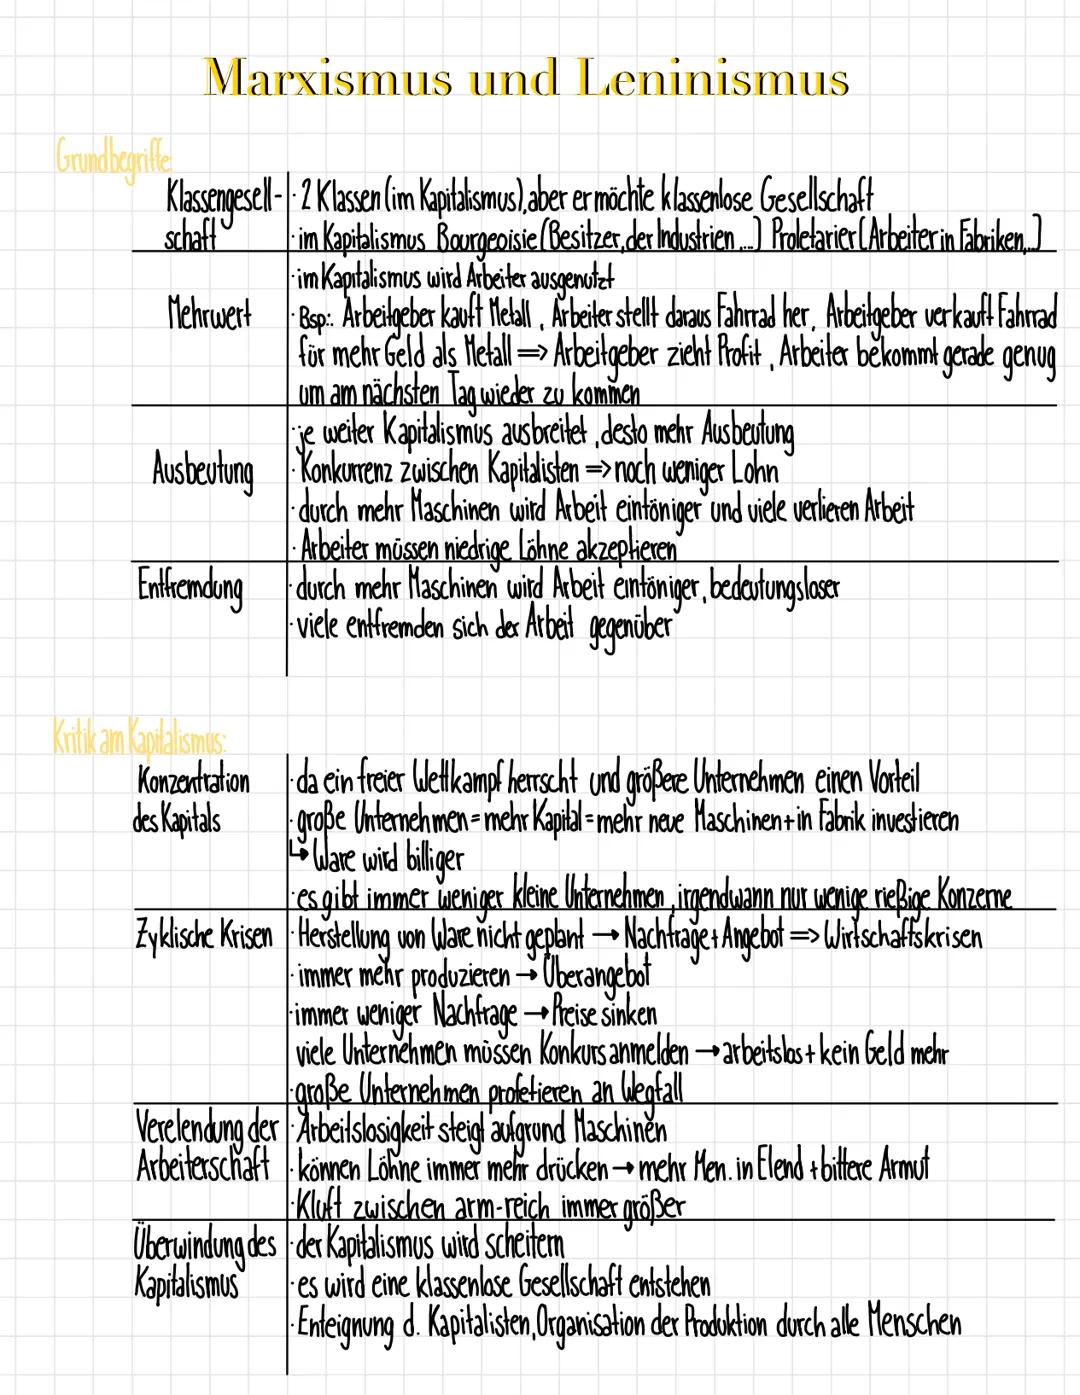 Marxismus und Leninismus
Grundbegriffe:
Klassengesell-
schaft
· 2 Klassen (im Kapitalismus), aber er möchte klassenlose Gesellschaft
· im Kapitalismus Bourgeoisie (Besitzer, der Industrien ...) Proletarier (Arbeiter in Fabriken,..)
Mehrwert
· im Kapitalismus wird Arbeiter ausgenutzt
· Bsp.: Arbeitgeber kauft Metall, Arbeiter stellt daraus Fahrrad her, Arbeitgeber verkauft Fahrrad
für mehr Geld als Metall => Arbeitgeber zieht Profit, Arbeiter bekommt gerade genug
um am nächsten Tag wieder zu kommen
Ausbeutung
· je weiter Kapitalismus ausbreitet, desto mehr Ausbeutung
· Konkurrenz zwischen Kapitalisten => noch weniger Lohn
· durch mehr Maschinen wird Arbeit eintöniger und viele verlieren Arbeit
· Arbeiter müssen niedrige Löhne akzeptieren
Entfremdung
· durch mehr Maschinen wird Arbeit eintöniger, bedeutungsloser
· viele entfremden sich der Arbeit gegenüber
Kritik am Kapitalismus:
Konzentration
des Kapitals
· da ein freier Wettkampf herrscht und größere Unternehmen einen Vorteil
· große Unternehmen = mehr Kapital = mehr neue Maschinen + in Fabrik investieren
↳ Ware wird billiger
· es gibt immer weniger kleine Unternehmen, irgendwann nur wenige rießige Konzerne
Zyklische Krisen
· Herstellung von Ware nicht geplant → Nachfrage + Angebot => Wirtschaftskrisen
· immer mehr produzieren → Überangebot
· immer weniger Nachfrage → Preise sinken
viele Unternehmen müssen Konkurs anmelden → arbeitslos + kein Geld mehr
· große Unternehmen profetieren an Wegfall
Verelendung der
Arbeiterschaft
· Arbeitslosigkeit steigt aufgrund Maschinen
· können Löhne immer mehr drücken → mehr Men. in Elend + bittere Armut
· Kluft zwischen arm-reich immer größer
Überwindung des
Kapitalismus
· der Kapitalismus wird scheitern
· es wird eine klassenlose Gesellschaft entstehen
· Enteignung d. Kapitalisten, Organisation der Produktion durch alle Menschen